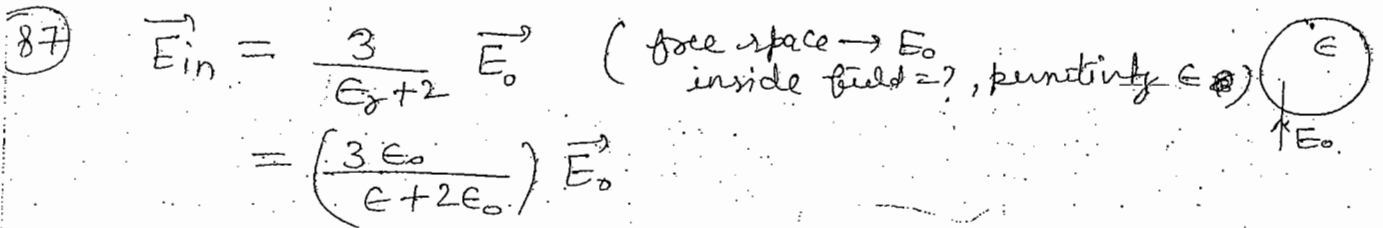 87 $\vec{E_{in}} = \frac{3}{\epsilon_r + 2} \vec{E_0}$ ( free space → E₀
inside field = ?, permittivity ϵ )
ϵ
↑ E₀.
$= \left( \frac{3 \epsilon_0}{\epsilon + 2 \epsilon_0} \right) \vec{E_0}$